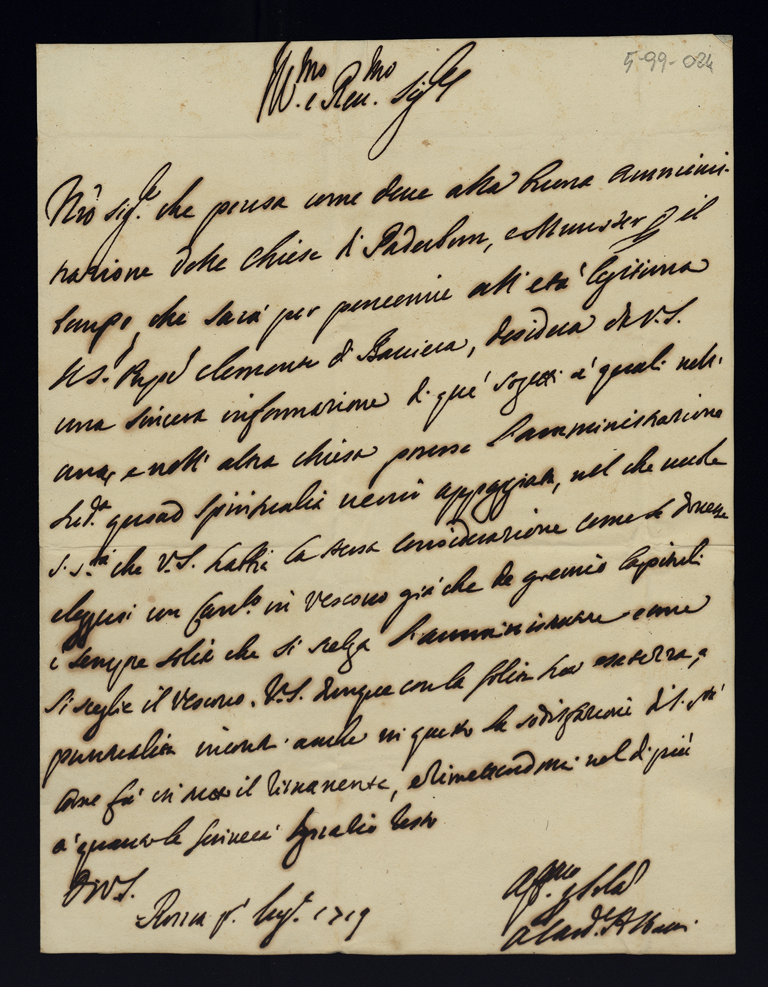 5-99-084
Ill.mo e Reu.mo Sig.re
Nro Sig.re che pensa come deue alla buona amminis-
trazione delle Chiese di Paderborn, e Munster p il
tempo, che sarà per peruenire all'età legitima
il S. Clemente di Bauiera, desidera da V.S.
una sincera informazione di que' sogetti a' quali nell'
una, e nell'altra chiesa possa l'amministrazione
sud.a quoad spiritualia uenir appoggiata, nel che uuole
S. S.tà che V.S. habbi la stessa considerazione come se douesse
eleggersi un in Vescouo già che de gremio Capituli
è sempre solito che si scelga l'amministratore come
si sceglie il Vescouo. V.S. dunque con la solita sua esatezza, e
puntualità incontri anche in questo la sodisfazione di S. S.tà
come fà in tutto il rimanente, e rimettendomi nel di più
a' quanto le scriuerà resto
Di V.S.
Roma p.o 1719
Aff.mo
A Card.le Albani